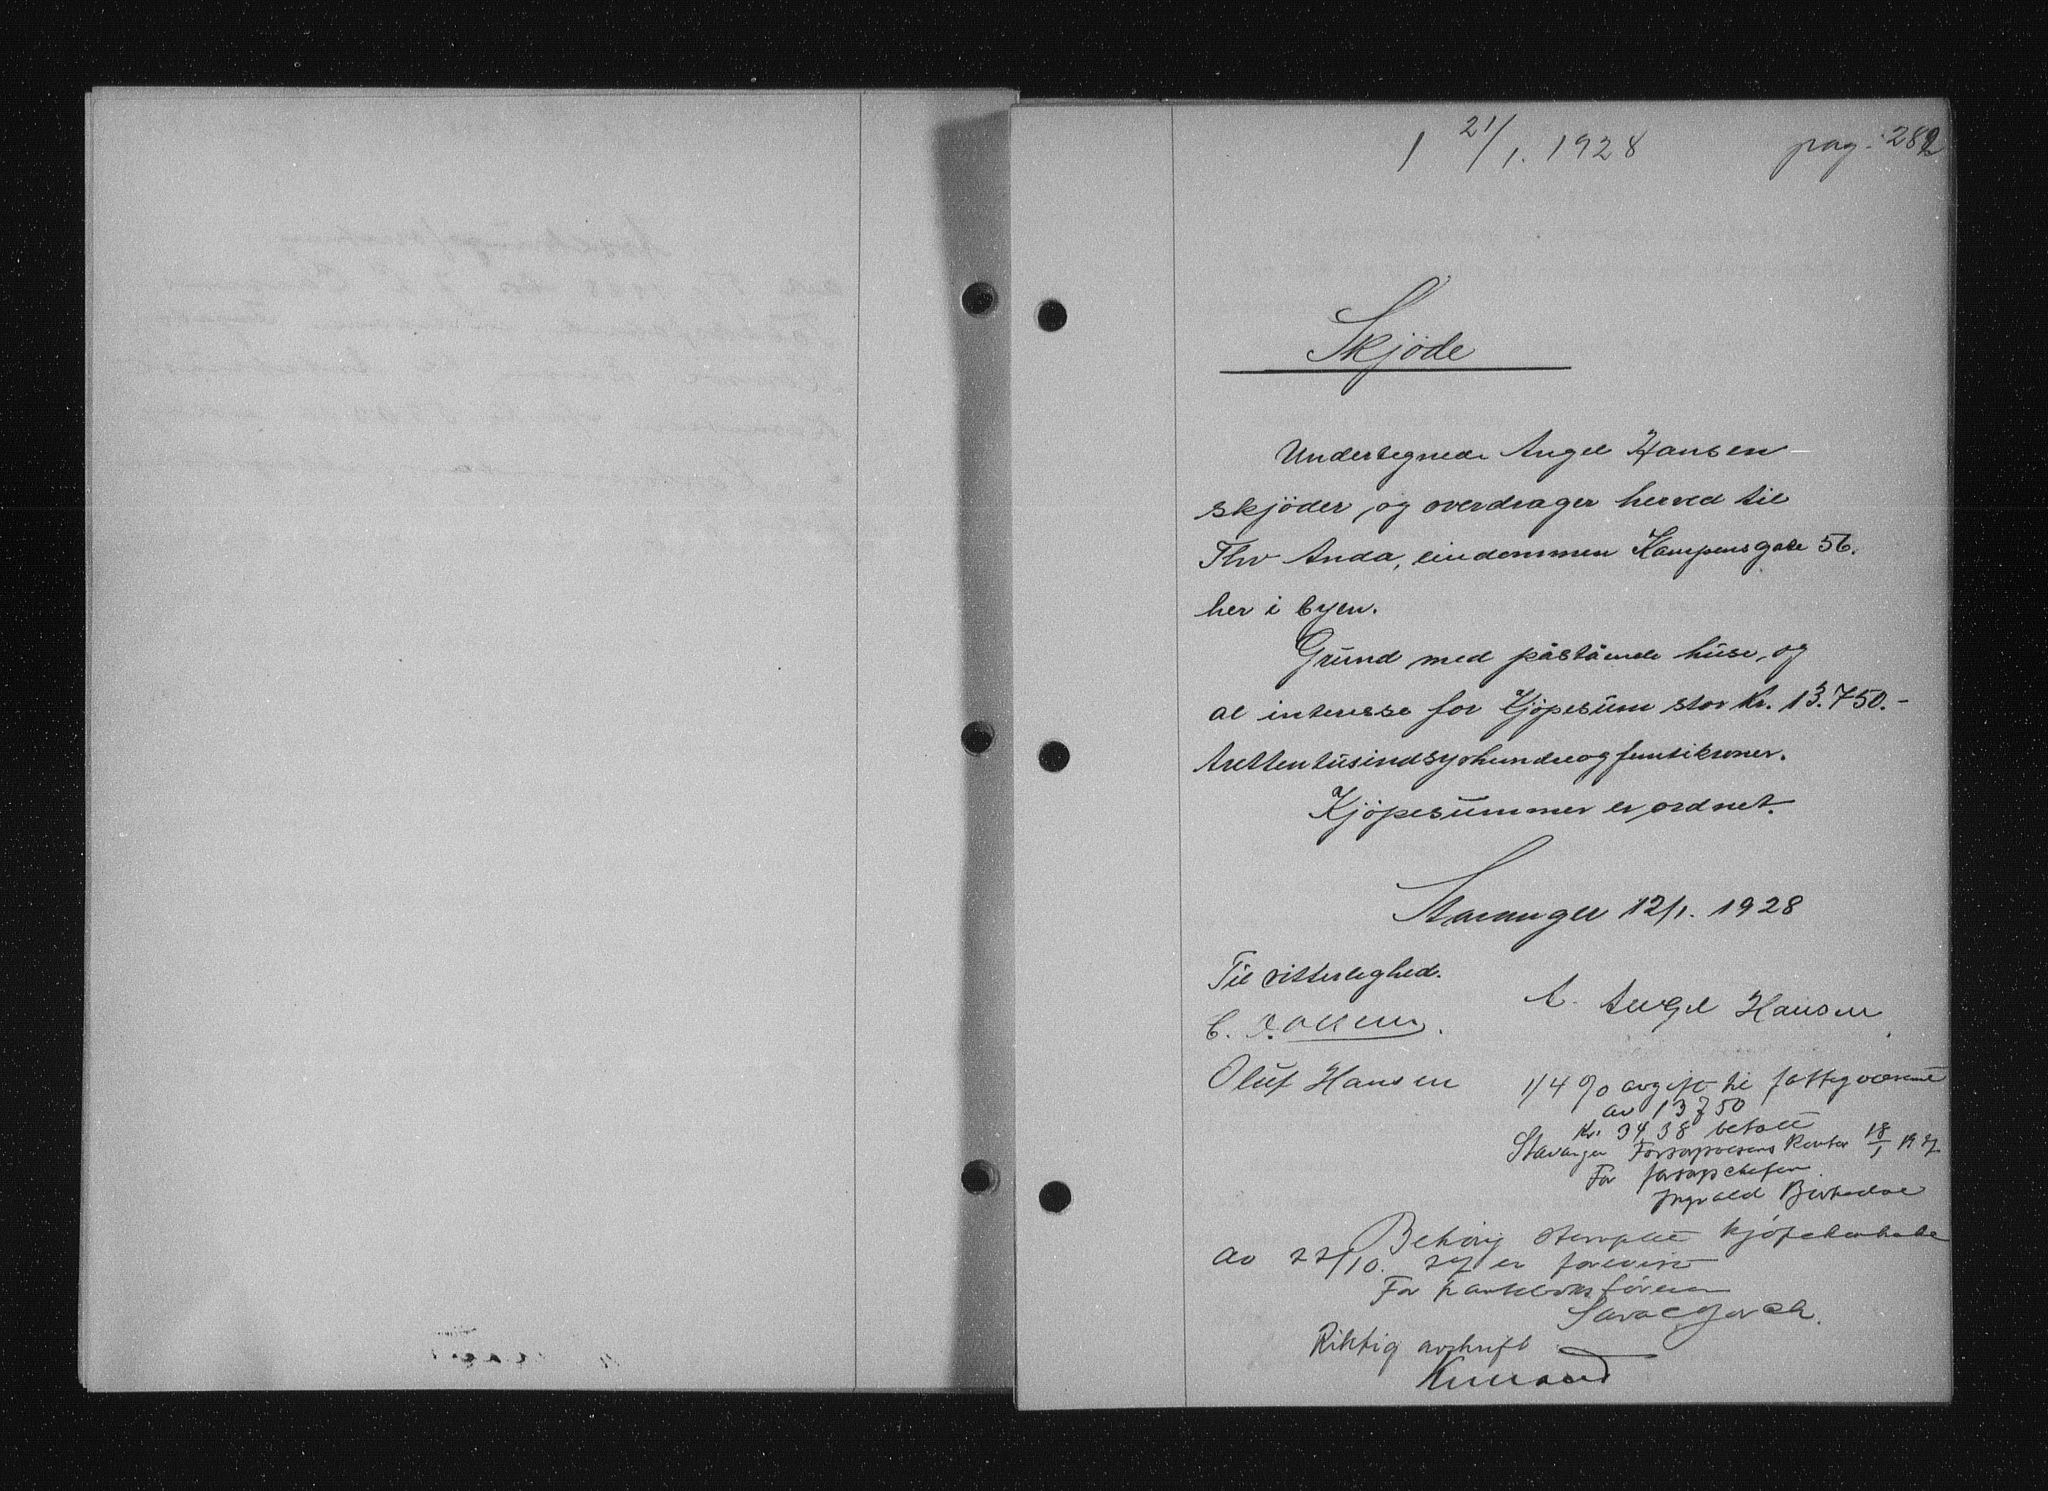 1 21/1. 1928 pag. 282
Skjöde
Undertegnede Angel Hansen
skjöder og overdrager herved til
Thv Anda, eiendommen Kampensgate 56.
her i byen.
Grund med påstående huse, og
al interesse for Kjöpesum stor Kr. 13.750.-
trettentusindsyvhundreogfemtikroner.
Kjöpesummer er ordnet.
Stavanger 12/1. 1928
Til vitterlighed.
A. Angel Hansen
C.
Oluf Hansen
1/4 % avgift til fattigvæsenet
av 13750
Kr. 34 38 betalt
Stavanger Forsorgvæsens Kontor 18/1
For forsorgschefen
Ingvald
Behörig stemplet kjöpekontrakt
av 22/10. 27 er forevist
For pantebokføreren
Riktig avskrift